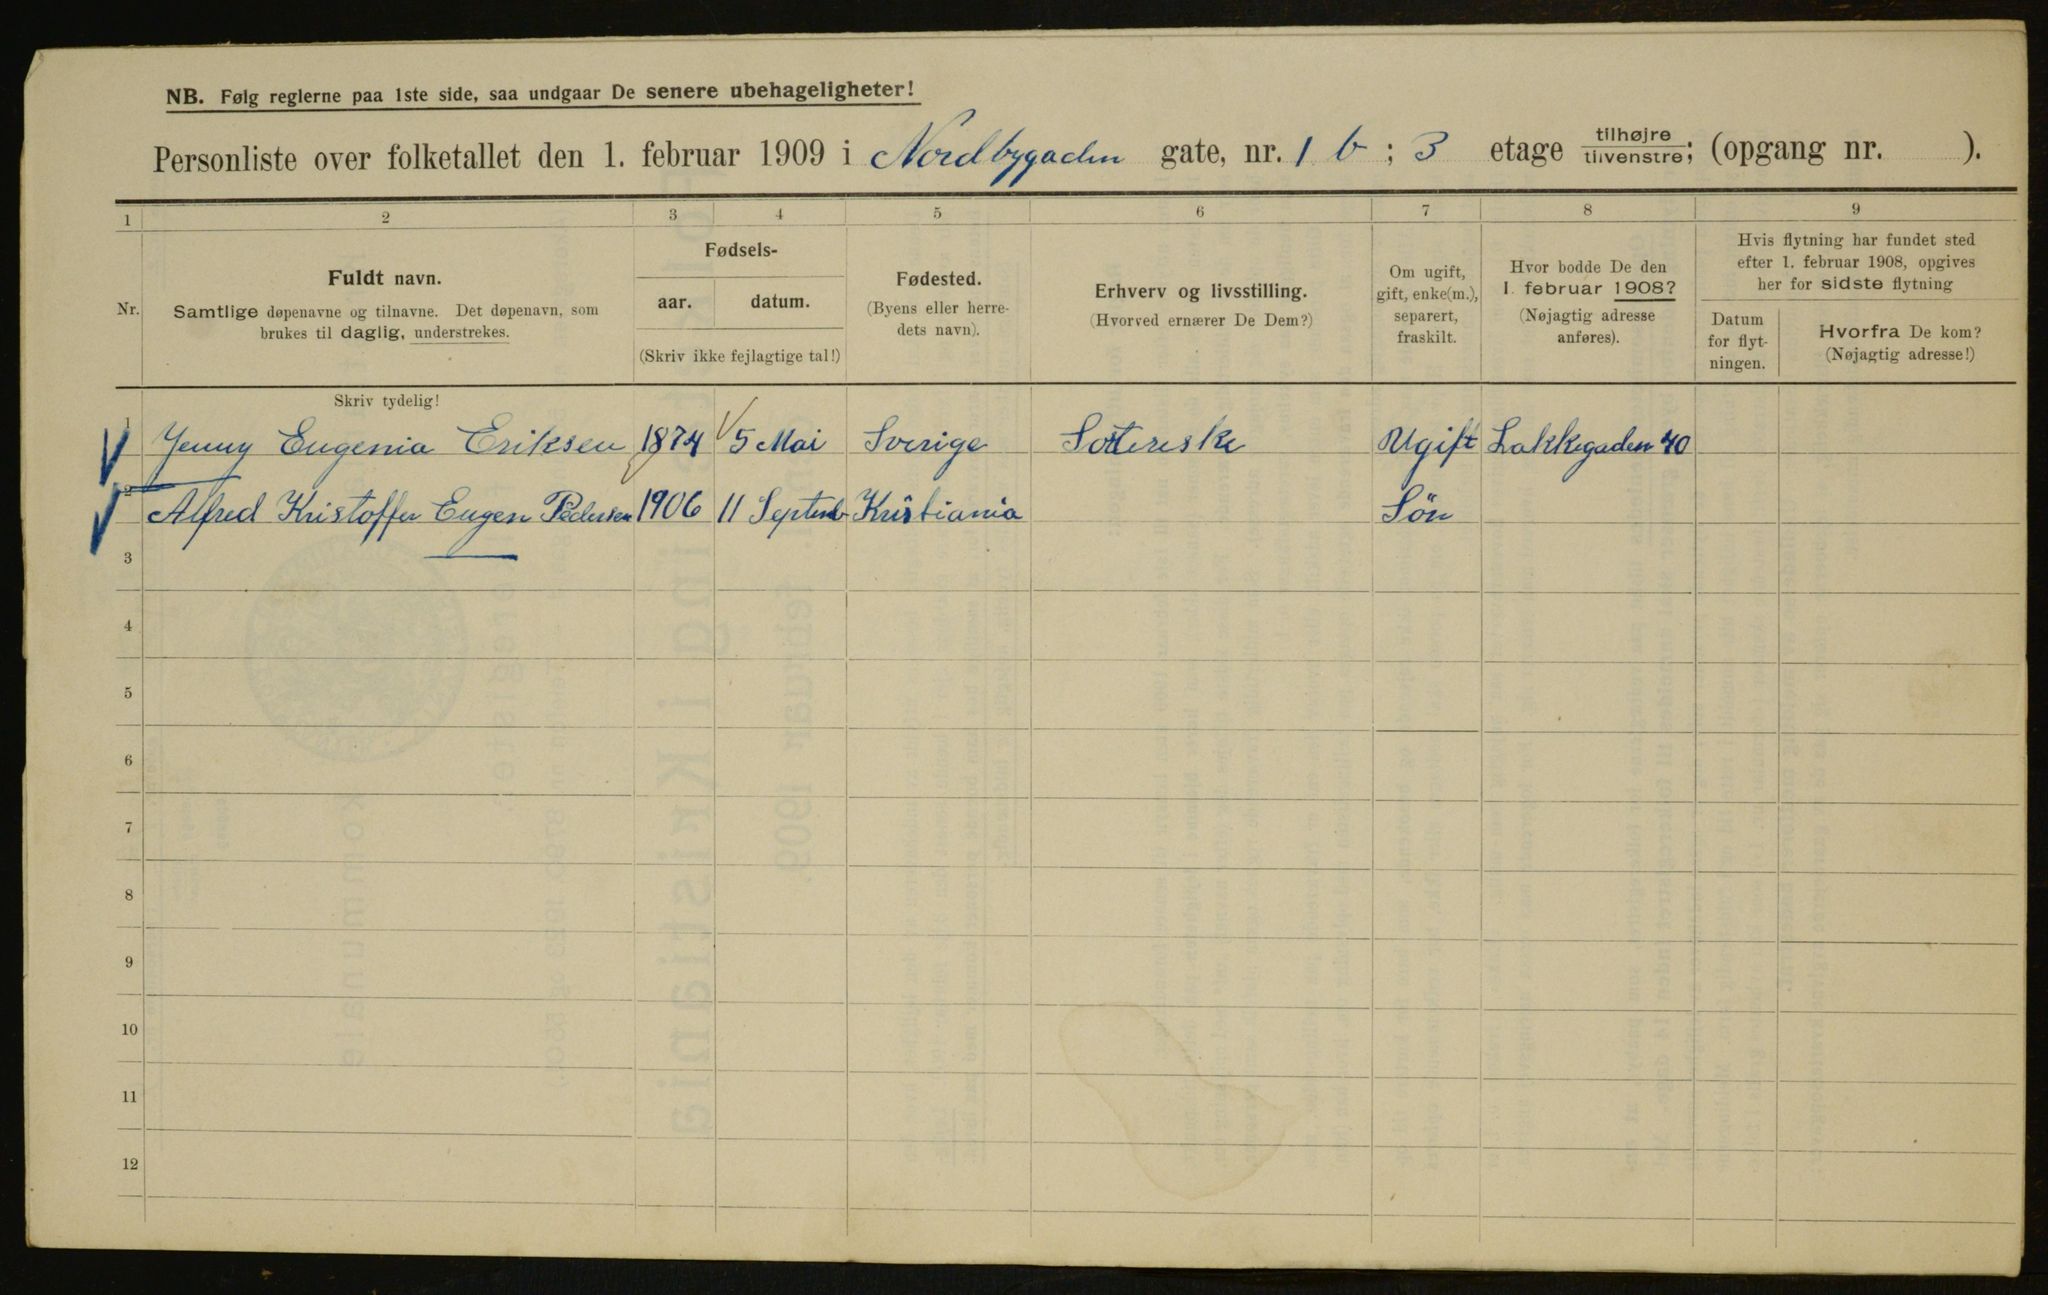 NB. Følg reglerne paa 1ste side, saa undgaar De senere ubehageligheter!
Personliste over folketallet den 1. februar 1909 i Nordbygaden gate, nr. 1 b ; 3 etage tilhøjre/tilvenstre; (opgang nr. ).
1 2 3 4 5 6 7 8 9
Nr.
Fuldt navn.
Samtlige døpenavne og tilnavne. Det døpenavn, som
brukes til daglig, understrekes.
Fødsels-
aar. datum.
(Skriv ikke fejlagtige tal!)
Fødested.
(Byens eller herre-
dets navn).
Erhverv og livsstilling.
(Hvorved ernærer De Dem?)
Om ugift,
gift, enke(m.),
separert,
fraskilt.
Hvor bodde De den
1. februar 1908?
(Nøjagtig adresse
anføres).
Hvis flytning har fundet sted
efter 1. februar 1908, opgives
her for sidste flytning
Datum
for flyt-
ningen.
Hvorfra De kom?
(Nøjagtig adresse!)
Skriv tydelig!
1 Jenny Eugenia Eriksen 1874 5 Mai Sverige Sottereske Ugift Lakkegaden 40
2 Alfred Kristoffer Eugen Pedersen 1906 11 Septemb Kristiania Søn
3
4
5
6
7
8
9
10
11
12